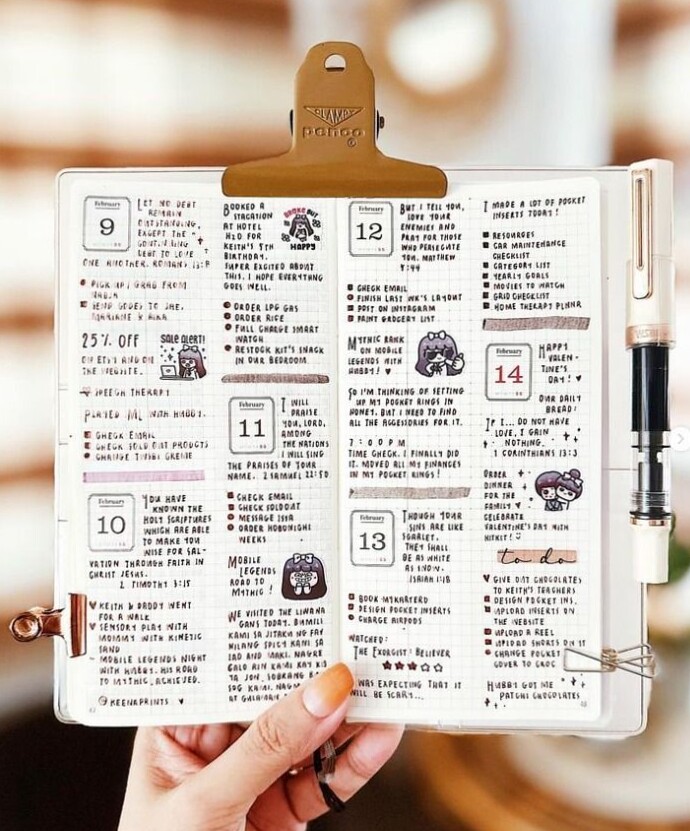 CLAMPY
penco
February
9
LET NO DEBT
REMAIN
OUTSTANDING,
EXCEPT THE
CONTINUING
DEBT TO LOVE
ONE ANOTHER. ROMANS 13:8
PICK UP/GRAB FROM
NADJA
SEND GOODS TO JHE,
MARIANE & AIKA
25% OFF
SALE ALERT!
ON ETSY AND ON
THE WEBSITE.
SPEECH THERAPY
PLAYED ML WITH HUBBY.
CHECK EMAIL
CHECK SOLD OUT PRODUCTS
CHANGE TWSBI CREME
February
10
YOU HAVE
KNOWN THE
HOLY SCRIPTURES
WHICH ARE ABLE
TO MAKE YOU
WISE FOR SAL-
VATION THROUGH FAITH IN
CHRIST JESUS.
2 TIMOTHY 3:15
KEITH & DADDY WENT
FOR A WALK
SENSORY PLAY WITH
MOMMY WITH KINETIC
SAND
MOBILE LEGENDS NIGHT
WITH HUBBY. HIS ROAD
TO MYTHIC, ACHIEVED.
@KEENKPRINTS
BOOKED A
STACATION
AT HOTEL
H2O FOR
KEITH'S 5TH
BIRTHDAY.
BROKE BUT
HAPPY
SUPER EXCITED ABOUT
THIS. I HOPE EVERYTHNG
GOES WELL.
ORDER LPG GAS
ORDER RICE
FULL CHARGE SMART
WATCH
RESTOCK KIT'S SNACK
IN OUR BEDROOM.
February
11
I WILL
PRAISE
YOU, LORD,
AMONG
THE NATIONS
I WILL SING
THE PRAISES OF YOUR
NAME. 2 SAMUEL 22:50
CHECK EMAIL
CHECK SOLDOUT
MESSAGE ISSA
ORDER HOBONIGHI
WEEKS
MOBILE
LEGENDS
ROAD TO
MYTHIC!
WE VISITED THE LIWANA
GANS TODAY. BUMILI
KAMI SA JITAKU NG FAV
NILANG SPICY KANI SA
IAD AND MAKI. NAGRE
GALO AIN KAMI KAY KU
TA JON. SOBRANG
SOG KAMI.
February
12
BUT I TELL YOU,
LOVE YOUR
ENEMIES AND
PRAY FOR THOSE
WHO PERSECUTE
YOU. MATTHEW
5:44
CHECK EMAIL
FINISH LAST WK'S LAYOUT
POST ON INSTAGRAM
PAINT GROCERY LIST
MYTHIC RANK
ON MOBILE
LEGENDS WITH
HUBBY!
SO I'M THINKING OF SETTING
UP MY POCKET RINGS IN
HONEY. BUT I NEED TO FIND
ALL THE ACCESSORIES FOR IT.
7:00PM
TIME CHECK. I FINALLY DID
IT. MOVED ALL MY FINANCES
IN MY POCKET RINGS!
February
13
THOUGH YOUR
SINS ARE LIKE
SCARLET,
THEY SHALL
BE AS WHITE
AS SNOW.
ISAIAH 1:18
BOOK
DESIGN POCKET INSERTS
CHARGE AIRPODS
WATCHED:
THE EXORCIST: BELIEVER
WAS EXPECTING THAT IT
WILL BE SCARY...
I MADE A LOT OF POCKET
INSERTS TODAY!
RESOURCES
CAR MAINTENANCE
CHECKLIST
CATEGORY LIST
YEARLY GOALS
MOVIES TO WATCH
GRID CHECKLIST
HOME THERAPY PLNNR
February
14
HAPPY
VALEN-
TINE'S
DAY!
OUR DAILY
BREAD:
IF I... DO NOT HAVE
LOVE, I GAIN
NOTHING.
1 CORINTHIANS 13:3
ORDER
DINNER
FOR THE
FAMILY
CELEBRATE
VALENTINE'S DAY WITH
HITKIT!
to do
GIVE OUT CHOCOLATES
TO KEITH'S TEACHERS
DESIGN POCKET INS.
UPLOAD INSERTS ON
THE WEBSITE
UPLOAD A REEL
UPLOAD SHORTS ON YT
CHANGE POCKET
COVER TO CROC
HUBBY GOT ME
PATCHI CHOCOLATES